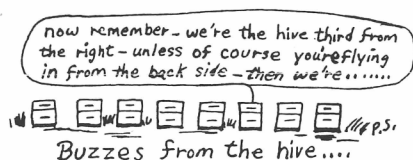 now remember - we're the hive third from
the right - unless of course you're flying
in from the back side - then we're........
P.S.
Buzzes from the hive....